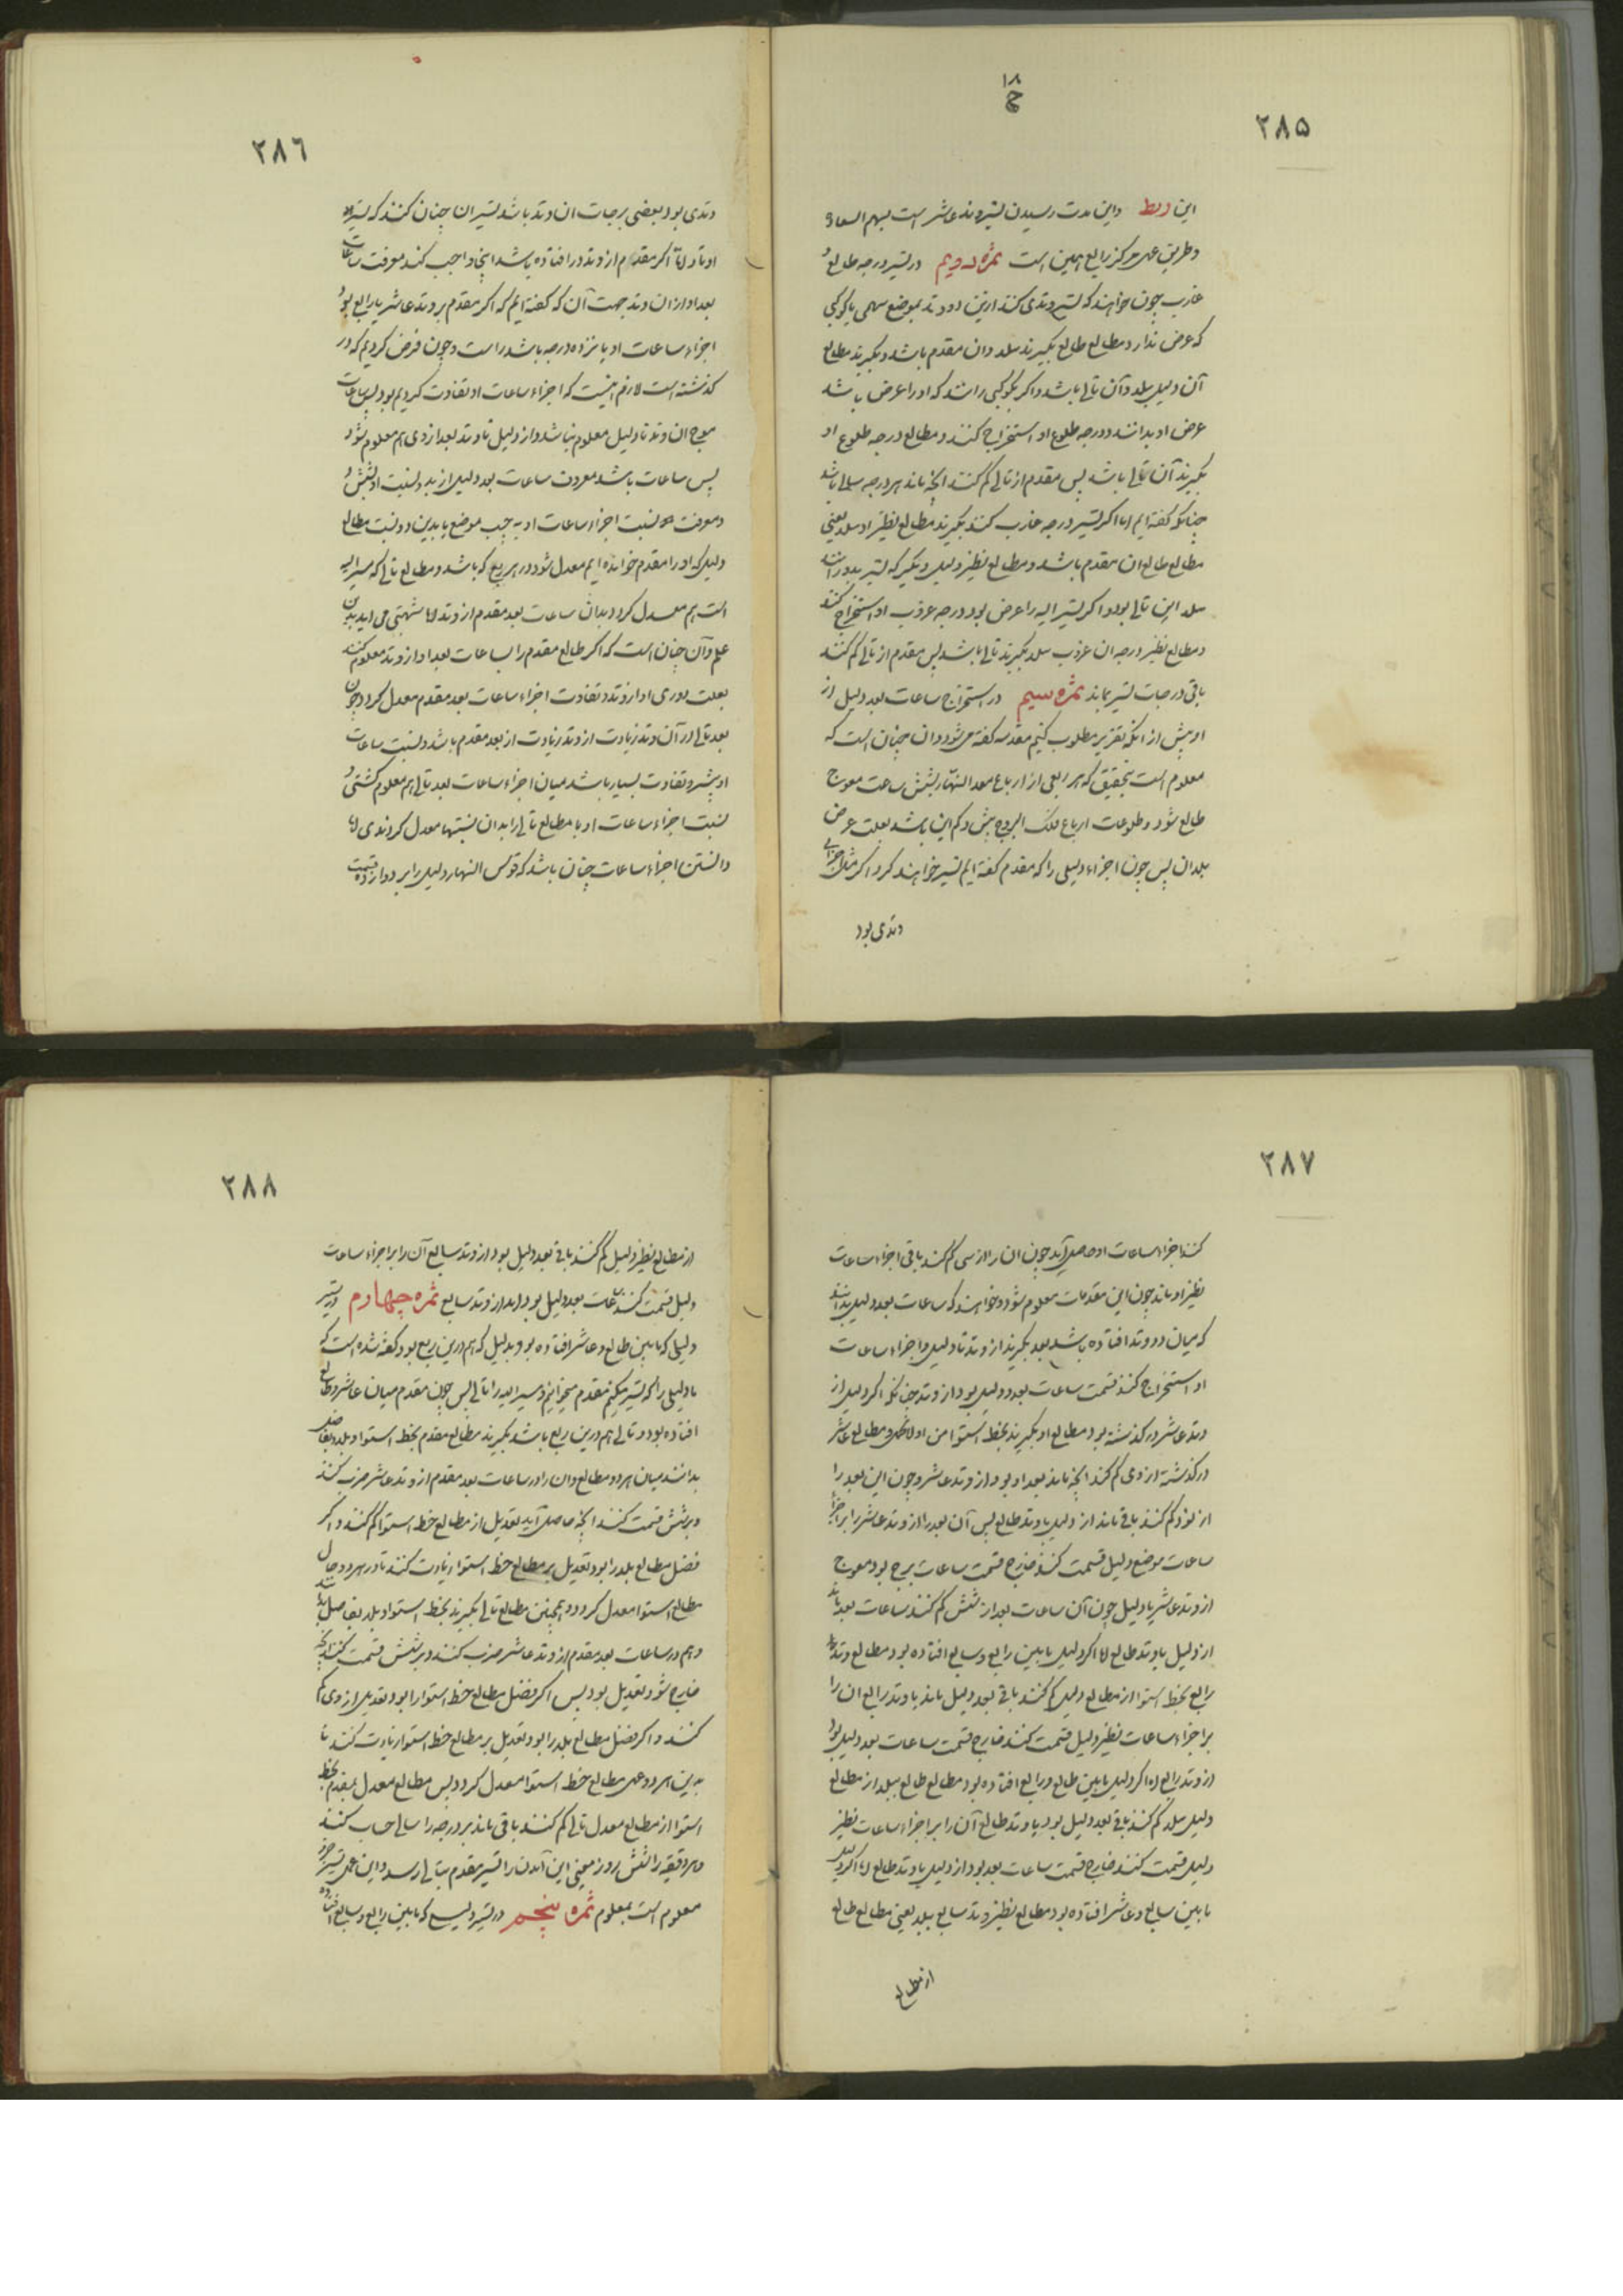 ١٨
ح
٢٨٥
این ربط واین مدت رسیدن تسیر وتد عاشر است بسهم السعاد
وطریق عمل مرکز رابع همین است ثمره دویم در تسیر درجه طالع و
غارب چون خواهند که تسیر وتدی کنند ازین دو وتد بموضع سهمی یا کوکبی
که عرض ندارد مطالع طالع بگیرند ببلد وان مقدم باشد وبگیرند مطالع
آن دلیل ببلد وآن تالی باشد واگر بکوکبی رانند که اورا عرض باشد
عرض او بدانند ودرجه طلوع او استخراج کنند ومطالع درجه طلوع او
بگیرند آن تالی باشد پس مقدم از تالی کم کنند انچه ماند هر درجه سالی باشد
چنانکه گفته ایم اما اگر تسیر درجه غارب کنند بگیرند مطالع نظیر او ببلد یعنی
مطالع طالع ان مقدم باشد ومطالع نظیر دلیل دیگر که تسیر بدو رانند
ببلد این تالی بود واگر تسیر الیه را عرض بود درجه غروب او استخراج کنند
ومطالع نظیر درجه ان غروب ببلد بگیرند تالی باشد پس مقدم از تالی کم کنند
باقی درجات تسیر بماند ثمره سیم در استخراج ساعات بعد دلیل از
او پیش از انکه تقریر مطلوب کنیم مقدمه گفته میشود وان چنان است که
معلوم است بتحقیق که هر ربعی از ارباع معدل النهار بشش ساعت معوج
طالع شود وطلوعات ارباع فلک البروج بیش وکم این باشد بعلت عرض
بلدان پس چون اجزاء دلیلی را که مقدم گفته ایم تسیر خواهند کرد اگر مثل اجزای
وتدی بود
٢٨٦
وتدی بود بعضی برجات ان وتد باشد تسیر ان چنان کنند که تسیر
اوتاد اما اگر مقدم از وتد در افتاده باشد اینجا واجب کند معرفت ساعات
بعد او از ان وتد جهت آن که گفته ایم که اگر مقدم بر وتد عاشر یا رابع بود
اجزاء ساعات او پانزده درجه باشد راست وچون فرض کردیم که در
گذشته است لازم اینست که اجزاء ساعات او تفاوت کردیم بود پس ساعات
معوج ان وتد تا دلیل معلوم نباشد واز دلیل تا وتد بعد از وی هم معلوم شود
پس ساعات باشد معرفت ساعات بعد دلیل از بد ونسبت او بشش و
ومعرفت نسبت اجزاء ساعات او به حسب موضع یا بدین دو نسبت مطالع
دلیل که اورا مقدم خوانده ایم معدل شود در هر ربع که باشد ومطالع تالی که مسیر الیه
است هم معدل گردد بدان ساعات بعد مقدم از وتد اما شبهتی می اید بدین
علم وآن چنان است که اگر طالع مقدم را بساعات بعد او از وتد معلوم کنند
بعلت دوری او از وتد وتفاوت اجزاء ساعات بعد مقدم معدل گردد چون
بعد تالی از آن وتد زیادت از وتد زیادت از بعد مقدم باشد ونسبت ساعات
او بیشتر وتفاوت بسیار باشد میان اجزاء ساعات بعد تالی هم معلوم گشتی و
نسبت اجزاء ساعات او با مطالع تالی را بدان نسبتها معدل کردندی اما
دانستن اجزاء ساعات چنان باشد که قوس النهار دلیل را بر دوازده قسمت
٢٨٧
کنند اجزاء ساعات او حاصل آید چون ان را از سی کم کنند باقی اجزاء ساعات
نظیر او ماند چون این مقدمات معلوم شود وخواهند که ساعات بعد دلیل بدانند
که میان دو وتد افتاده باشد بعد بگیرند از وتد تا دلیل واجزاء ساعات
او استخراج کنند قسمت ساعات بعد دلیل بود از وتد چنانکه اگر دلیل از
وتد عاشر در گذشته بود مطالع او بگیرند بخط استوا من اول الجدی ومطالع عاشر
در گذشته از وی کم کنند انچه ماند بعد او بود از وتد عاشر وچون این بعد را
از نود کم کنند باقی ماند از دلیل با وتد طالع پس آن بعد را از وتد عاشر بر اجزا
ساعات موضع دلیل قسمت کنند خارج قسمت ساعات برج بود معوج
از وتد عاشر یا دلیل چون آن ساعات بعد از شش کم کنند ساعات بعد ماند
از دلیل یا وتد طالع اما اگر دلیل مابین رابع وسابع افتاده بود مطالع وتد
رابع بخط استوا از مطالع دلیل کم کنند باقی بعد دلیل ماند با وتد رابع ان را
بر اجزاء ساعات نظیر دلیل قسمت کنند خارج قسمت ساعات بعد دلیل بود
از وتد رابع اما اگر دلیل مابین طالع ورابع افتاده بود مطالع طالع ببلد از مطالع
دلیل ببلد کم کنند باقی بعد دلیل بود با وتد طالع آن را بر اجزاء ساعات نظیر
دلیل قسمت کنند خارج قسمت ساعات بعد بود از دلیل با وتد طالع اما اگر دلیل
مابین سابع وعاشر افتاده بود مطالع نظیر وتد سابع ببلد یعنی مطالع طالع
از مطالع
٢٨٨
از مطالع نظیر دلیل کم کنند باقی بعد دلیل بود از وتد سابع آن را بر اجزاء ساعات
دلیل قسمت کنند ساعات بعد دلیل بود از وتد سابع ثمره چهارم در تسیر
دلیلی که مابین طالع وعاشر افتاده بود بدلیل که هم درین ربع بود گفته شده است که
ما دلیلی را که تسیر میکنیم مقدم میخوانیم ومسیر الیه را تالی پس چون مقدم میان عاشر وطالع
افتاده بود وتالی هم درین ربع باشد بگیرند مطالع مقدم بخط استوا وببلد وتفاضل
بدانند میان هر دو مطالع وان را در ساعات بعد مقدم از وتد عاشر ضرب کنند
وبر شش قسمت کنند انچه حاصل آید تعدیل از مطالع خط استوا کم کنند واگر
فضل مطالع بلد را بود تعدیل بر مطالع خط استوا زیادت کنند تا در هر دو حال
مطالع استوا معدل گردد وهمچنین مطالع تالی بگیرند بخط استوا وببلد وتفاضل بدانند
وهم در ساعات بعد مقدم از وتد عاشر ضرب کنند وبر شش قسمت کنند انچه
خارج شود تعدیل بود پس اگر فضل مطالع خط استوا را بود تعدیل از وی کم
کنند واگر فضل مطالع بلد را بود تعدیل بر مطالع خط استوا زیادت کنند تا
بدین هر دو عمل مطالع خط استوا معدل گردد پس مطالع معدل مقدم بخط
استوا از مطالع معدل تالی کم کنند باقی ماند هر درجه را سالی حساب کنند
وهر دقیقه را شش روز معینی این آمدن را تسیر مقدم بتالی رسد واین عمل تسیر
معلوم است بمعلوم ثمره پنجم در تسیر دلیلی که مابین رابع وسابع افتاده